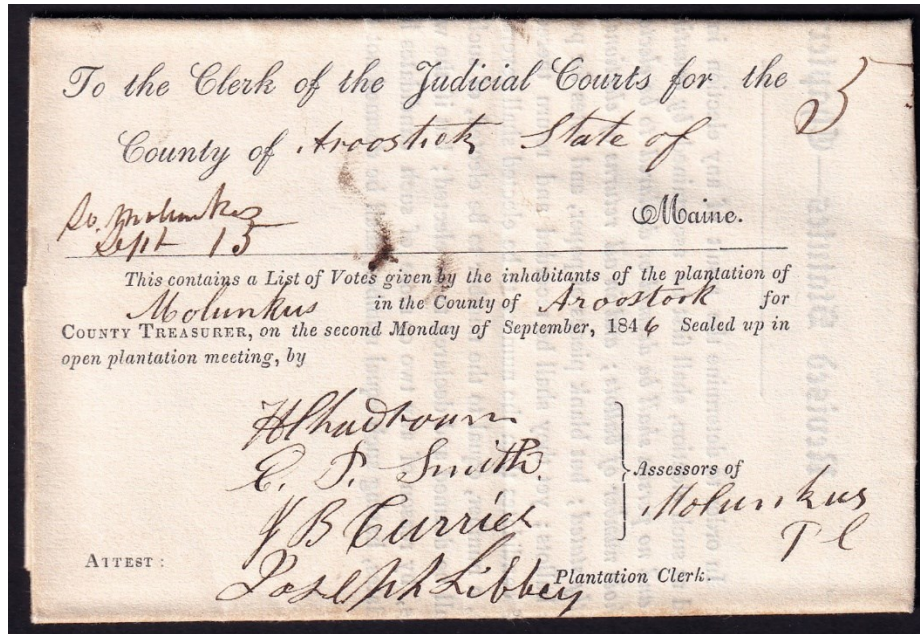 To the Clerk of the Judicial Courts for the
5
County of Aroostick State of
Maine.
So. Molunkus
Sept 15
This contains a List of Votes given by the inhabitants of the plantation of
Molunkus in the County of Aroostook for
COUNTY TREASURER, on the second Monday of September, 1846 Sealed up in
open plantation meeting, by
H Chadbourn
E. P. Smith.
J B Currier
Assessors of
Molunkus
Pl
ATTEST:
Joseph Libbey Plantation Clerk.